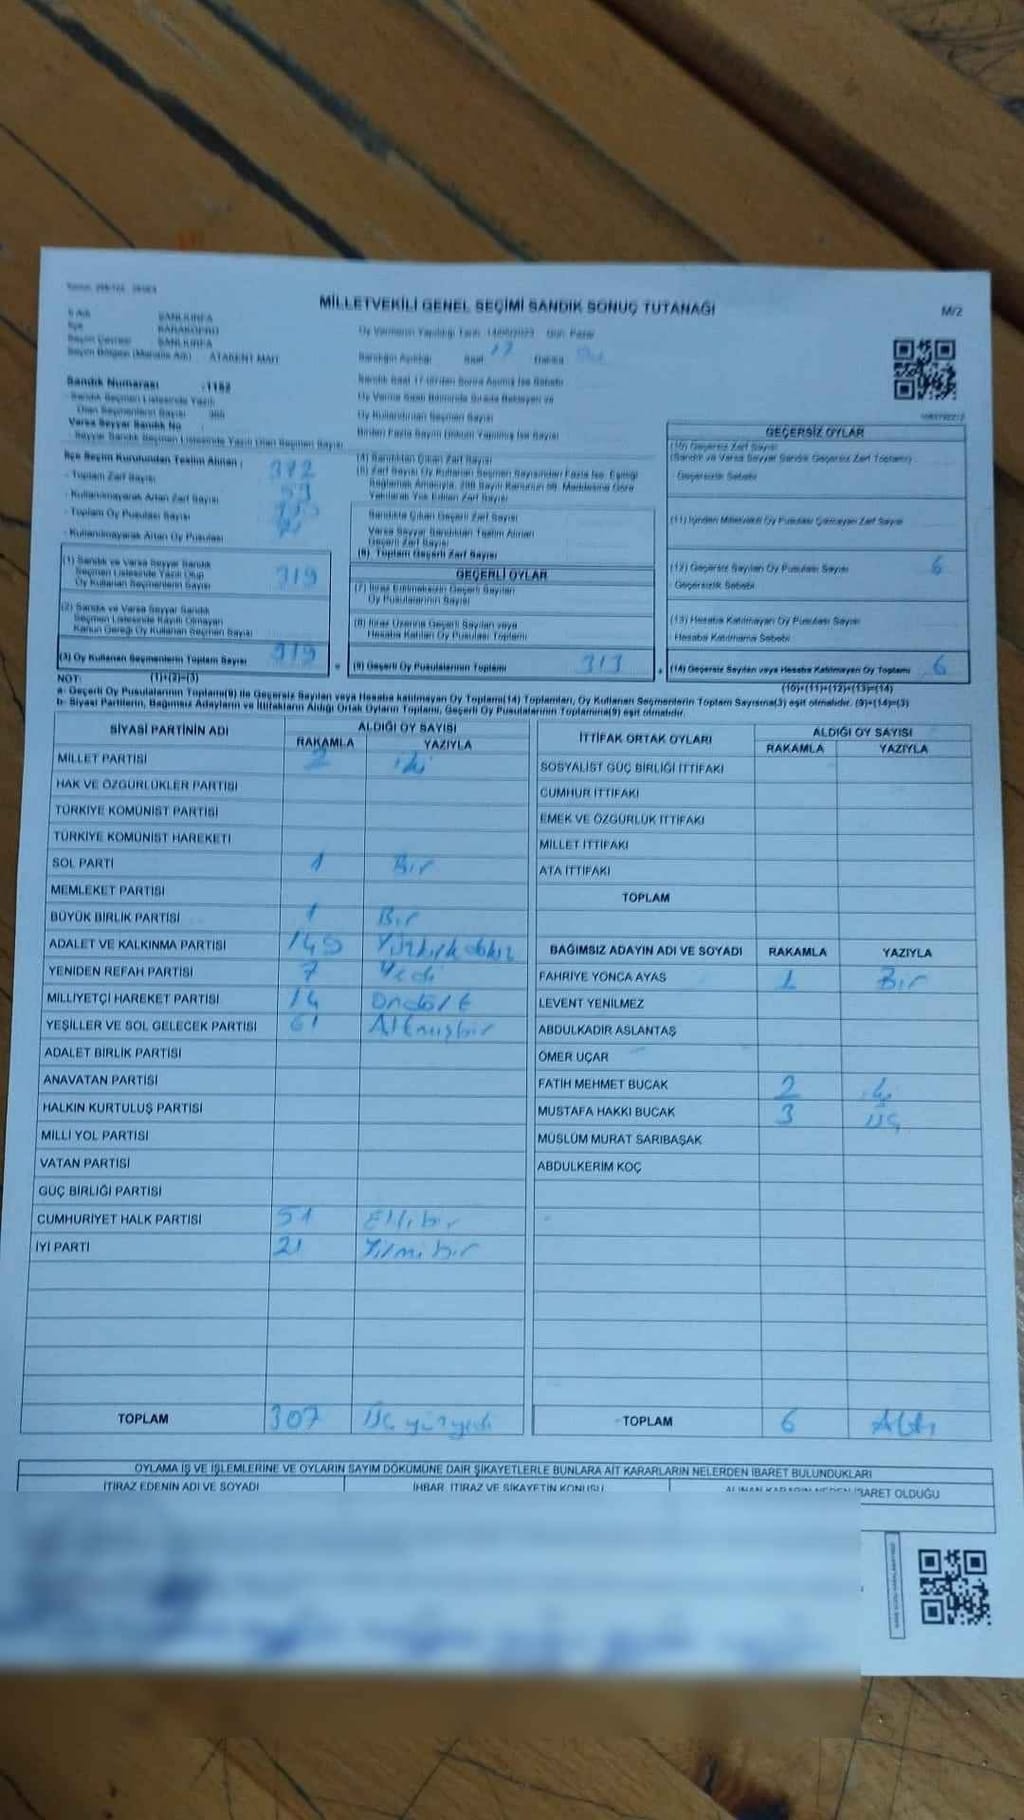 MİLLETVEKİLİ GENEL SEÇİMİ SANDIK SONUÇ TUTANAĞI
M/2
ŞANLIURFA
KARAKÖPRÜ
ŞANLIURFA
Seçim Bölgesi (Mahalle Adı) : ATAKENT MAH.
Sandık Numarası :1182
- Sandık Seçmen Listesinde Yazılı
Olan Seçmenlerin Sayısı
Varsa Seyyar Sandık No
- Seyyar Sandık Seçmen Listesinde Yazılı Olan Seçmen Sayısı
İlçe Seçim Kurulundan Teslim Alınan :
- Toplam Zarf Sayısı 372
- Kullanılmayarak Artan Zarf Sayısı
- Toplam Oy Pusulası Sayısı
- Kullanılmayarak Artan Oy Pusulası
(1) Sandık ve Varsa Seyyar Sandık
Seçmen Listesinde Yazılı Olup
Oy Kullanan Seçmenlerin Sayısı 319
(2) Sandık ve Varsa Seyyar Sandık
Seçmen Listesinde Kayıtlı Olmayan
Kanun Gereği Oy Kullanan Seçmen Sayısı
(3) Oy Kullanan Seçmenlerin Toplam Sayısı 319
(1)+(2)=(3)
Oy Vermenin Yapıldığı Tarih :14/05/2023 Gün: Pazar
Sandığın Açıldığı Saat 17
Sandık Saat 17'den Sonra Açılmış İse Sebebi
Oy Verme Saati Bitiminde Sırada Bekleyen ve
Oy Kullandırılan Seçmen Sayısı
Birden Fazla Sayım Döküm Yapılmış İse Sayısı
(4) Sandıktan Çıkan Zarf Sayısı
(5) Zarf Sayısı Oy Kullanan Seçmen Sayısından Fazla İse, Eşitliği
Sağlamak Amacıyla, 298 Sayılı Kanunun 98. Maddesine Göre
Yakılarak Yok Edilen Zarf Sayısı
Sandıkta Çıkan Geçerli Zarf Sayısı
Varsa Seyyar Sandıktan Teslim Alınan
Geçerli Zarf Sayısı
(6) Toplam Geçerli Zarf Sayısı
GEÇERLİ OYLAR
(7) İtiraz Edilmeksizin Geçerli Sayılan
Oy Pusulalarının Sayısı
(8) İtiraz Üzerine Geçerli Sayılan veya
Hesaba Katılan Oy Pusulası Toplamı
(9) Geçerli Oy Pusulalarının Toplamı 313
GEÇERSİZ OYLAR
(10) Geçersiz Zarf Sayısı
(Sandık ve Varsa Seyyar Sandık Geçersiz Zarf Toplamı)
Geçersizlik Sebebi
(11) İçinden Milletvekili Oy Pusulası Çıkmayan Zarf Sayısı
(12) Geçersiz Sayılan Oy Pusulası Sayısı 6
Geçersizlik Sebebi
(13) Hesaba Katılmayan Oy Pusulası Sayısı
Hesaba Katılmama Sebebi
(14) Geçersiz Sayılan veya Hesaba Katılmayan Oy Toplamı 6
(10)+(11)+(12)+(13)=(14)
NOT:
a- Geçerli Oy Pusulalarının Toplamı(9) ile Geçersiz Sayılan veya Hesaba katılmayan Oy Toplamı(14) Toplamları, Oy Kullanan Seçmenlerin Toplam Sayısına(3) eşit olmalıdır. (9)+(14)=(3)
b- Siyasi Partilerin, Bağımsız Adayların ve İttifakların Aldığı Ortak Oyların Toplamı, Geçerli Oy Pusulalarının Toplamına(9) eşit olmalıdır.
SİYASİ PARTİNİN ADI ALDIĞI OY SAYISI
RAKAMLA YAZIYLA
MİLLET PARTİSİ 2 iki
HAK VE ÖZGÜRLÜKLER PARTİSİ
TÜRKİYE KOMÜNİST PARTİSİ
TÜRKİYE KOMÜNİST HAREKETİ
SOL PARTİ 1 Bir
MEMLEKET PARTİSİ
BÜYÜK BİRLİK PARTİSİ 1 Bir
ADALET VE KALKINMA PARTİSİ
YENİDEN REFAH PARTİSİ 7 Yedi
MİLLİYETÇİ HAREKET PARTİSİ 14 Ondört
YEŞİLLER VE SOL GELECEK PARTİSİ 61 Altmışbir
ADALET BİRLİK PARTİSİ
ANAVATAN PARTİSİ
HALKIN KURTULUŞ PARTİSİ
MİLLİ YOL PARTİSİ
VATAN PARTİSİ
GÜÇ BİRLİĞİ PARTİSİ
CUMHURİYET HALK PARTİSİ 51 Ellibir
İYİ PARTİ 21 Yirmibir
TOPLAM 307 Üç yüz yedi
İTTİFAK ORTAK OYLARI ALDIĞI OY SAYISI
RAKAMLA YAZIYLA
SOSYALİST GÜÇ BİRLİĞİ İTTİFAKI
CUMHUR İTTİFAKI
EMEK VE ÖZGÜRLÜK İTTİFAKI
MİLLET İTTİFAKI
ATA İTTİFAKI
TOPLAM
BAĞIMSIZ ADAYIN ADI VE SOYADI RAKAMLA YAZIYLA
FAHRİYE YONCA AYAS 1 Bir
LEVENT YENİLMEZ
ABDULKADİR ASLANTAŞ
ÖMER UÇAR
FATİH MEHMET BUCAK 2 iki
MUSTAFA HAKKI BUCAK 3 üç
MÜSLÜM MURAT SARIBAŞAK
ABDULKERİM KOÇ
TOPLAM 6 Altı
OYLAMA İŞ VE İŞLEMLERİNE VE OYLARIN SAYIM DÖKÜMÜNE DAİR ŞİKAYETLERLE BUNLARA AİT KARARLARIN NELERDEN İBARET BULUNDUKLARI
İTİRAZ EDENİN ADI VE SOYADI İHBAR, İTİRAZ VE ŞİKAYETİN KONUSU ALINAN KARARIN NEDEN İBARET OLDUĞU